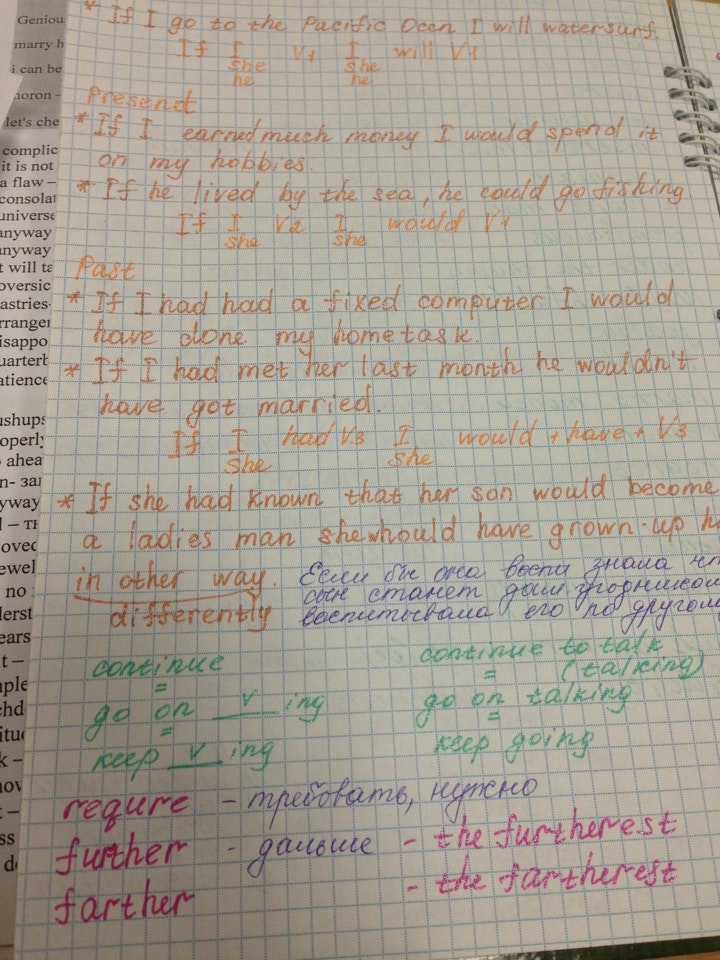 Geniou
marry h
i can be
moron -
let's che
complic
it is not
a flaw –
consolat
universe
anyway
anyway
t will ta
oversic
astries-
rranger
isappo
uarterb
atience
ushups
operly
ahea
n- заг
yway
oved
ewel
no
lerst
ears
t –
k –
* If I go to the Pacific Ocen I will watersurf.
If I V1 I will V1
she she
he he
Present
* If I earned much money I would spend it
on my hobbies.
* If he lived by the sea, he could go fishing
If I V2 I would V1
she she
Past
* If I had had a fixed computer I would
have done my hometask.
* If I had met her last month he wouldn't
have got married.
If I had V3 I would + have + V3
she she
* If she had known that her son would become
a ladies man she would have grown-up h
in other way. Если бы она воспи знала чт
сын станет дам угодником
differently воспитывала его по другому
continue continue to talk
= = (talking)
go on __v__ ing go on talking
= =
keep __v__ ing keep going
requre - требовать, нужно
further - дальше - the furtherest
farther - the fartherest